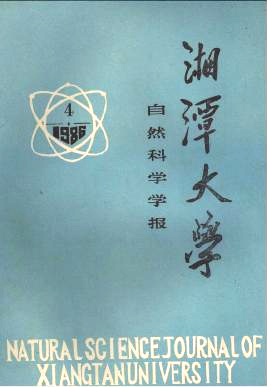 湘潭大学
自然科学学报
4
1986
NATURAL SCIENCE JOURNAL OF
XIANGTAN UNIVERSITY